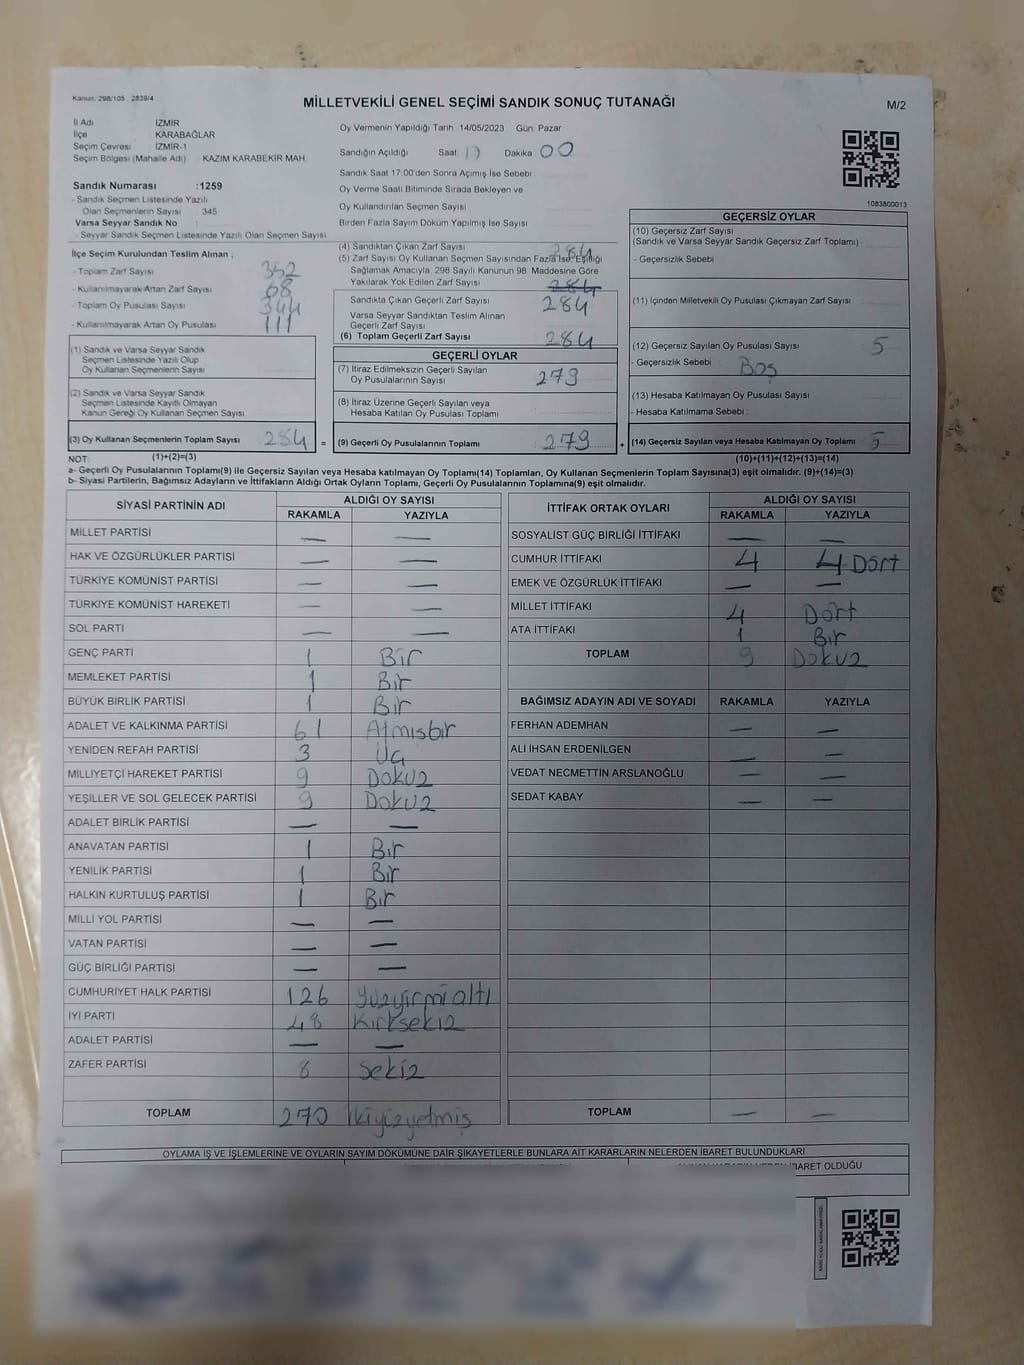 Kanun: 298/105 , 2839/4
MİLLETVEKİLİ GENEL SEÇİMİ SANDIK SONUÇ TUTANAĞI
M/2
İl Adı : İZMİR
İlçe : KARABAĞLAR
Seçim Çevresi : İZMİR-1
Seçim Bölgesi (Mahalle Adı) : KAZIM KARABEKİR MAH.
Sandık Numarası :1259
- Sandık Seçmen Listesinde Yazılı
Olan Seçmenlerin Sayısı : 345
Varsa Seyyar Sandık No :
- Seyyar Sandık Seçmen Listesinde Yazılı Olan Seçmen Sayısı :
Oy Vermenin Yapıldığı Tarih : 14/05/2023 Gün: Pazar
Sandığın Açıldığı Saat 17 Dakika 00
Sandık Saat 17:00'den Sonra Açılmış İse Sebebi :
Oy Verme Saati Bitiminde Sırada Bekleyen ve
Oy Kullandırılan Seçmen Sayısı
Birden Fazla Sayım Döküm Yapılmış İse Sayısı :
1083800013
İlçe Seçim Kurulundan Teslim Alınan ;
- Toplam Zarf Sayısı : 352
- Kullanılmayarak Artan Zarf Sayısı : 68
- Toplam Oy Pusulası Sayısı : 344
- Kullanılmayarak Artan Oy Pusulası : 111
(1) Sandık ve Varsa Seyyar Sandık
Seçmen Listesinde Yazılı Olup
Oy Kullanan Seçmenlerin Sayısı
(2) Sandık ve Varsa Seyyar Sandık
Seçmen Listesinde Kayıtlı Olmayan
Kanun Gereği Oy Kullanan Seçmen Sayısı
(3) Oy Kullanan Seçmenlerin Toplam Sayısı 284 =
(4) Sandıktan Çıkan Zarf Sayısı 284
(5) Zarf Sayısı Oy Kullanan Seçmen Sayısından Fazla İse, Eşitliği
Sağlamak Amacıyla 298 Sayılı Kanunun 98. Maddesine Göre
Yakılarak Yok Edilen Zarf Sayısı 284
Sandıkta Çıkan Geçerli Zarf Sayısı 284
Varsa Seyyar Sandıktan Teslim Alınan
Geçerli Zarf Sayısı
(6) Toplam Geçerli Zarf Sayısı 284
GEÇERLİ OYLAR
(7) İtiraz Edilmeksizin Geçerli Sayılan
Oy Pusulalarının Sayısı 279
(8) İtiraz Üzerine Geçerli Sayılan veya
Hesaba Katılan Oy Pusulası Toplamı
(9) Geçerli Oy Pusulalarının Toplamı 279 +
GEÇERSİZ OYLAR
(10) Geçersiz Zarf Sayısı
(Sandık ve Varsa Seyyar Sandık Geçersiz Zarf Toplamı)
- Geçersizlik Sebebi :
(11) İçinden Milletvekili Oy Pusulası Çıkmayan Zarf Sayısı
(12) Geçersiz Sayılan Oy Pusulası Sayısı 5
- Geçersizlik Sebebi : Boş
(13) Hesaba Katılmayan Oy Pusulası Sayısı
- Hesaba Katılmama Sebebi :
(14) Geçersiz Sayılan veya Hesaba Katılmayan Oy Toplamı 5
NOT: (1)+(2)=(3) (10)+(11)+(12)+(13)=(14)
a- Geçerli Oy Pusulalarının Toplamı(9) ile Geçersiz Sayılan veya Hesaba katılmayan Oy Toplamı(14) Toplamları, Oy Kullanan Seçmenlerin Toplam Sayısına(3) eşit olmalıdır. (9)+(14)=(3)
b- Siyasi Partilerin, Bağımsız Adayların ve İttifakların Aldığı Ortak Oyların Toplamı, Geçerli Oy Pusulalarının Toplamına(9) eşit olmalıdır.
SİYASİ PARTİNİN ADI ALDIĞI OY SAYISI
RAKAMLA YAZIYLA
MİLLET PARTİSİ — —
HAK VE ÖZGÜRLÜKLER PARTİSİ — —
TÜRKİYE KOMÜNİST PARTİSİ — —
TÜRKİYE KOMÜNİST HAREKETİ — —
SOL PARTİ — —
GENÇ PARTİ 1 Bir
MEMLEKET PARTİSİ 1 Bir
BÜYÜK BİRLİK PARTİSİ 1 Bir
ADALET VE KALKINMA PARTİSİ 61 Atmışbir
YENİDEN REFAH PARTİSİ 3 Üç
MİLLİYETÇİ HAREKET PARTİSİ 9 Dokuz
YEŞİLLER VE SOL GELECEK PARTİSİ 9 Dokuz
ADALET BİRLİK PARTİSİ — —
ANAVATAN PARTİSİ 1 Bir
YENİLİK PARTİSİ 1 Bir
HALKIN KURTULUŞ PARTİSİ 1 Bir
MİLLİ YOL PARTİSİ — —
VATAN PARTİSİ — —
GÜÇ BİRLİĞİ PARTİSİ — —
CUMHURİYET HALK PARTİSİ 126 Yüzyirmialtı
İYİ PARTİ 48 Kırksekiz
ADALET PARTİSİ — —
ZAFER PARTİSİ 8 Sekiz
TOPLAM 270 İkiyüzyetmiş
İTTİFAK ORTAK OYLARI ALDIĞI OY SAYISI
RAKAMLA YAZIYLA
SOSYALİST GÜÇ BİRLİĞİ İTTİFAKI — —
CUMHUR İTTİFAKI 4 4 Dört
EMEK VE ÖZGÜRLÜK İTTİFAKI — —
MİLLET İTTİFAKI 4 Dört
ATA İTTİFAKI 1 Bir
TOPLAM 9 Dokuz
BAĞIMSIZ ADAYIN ADI VE SOYADI RAKAMLA YAZIYLA
FERHAN ADEMHAN — —
ALİ İHSAN ERDENİLGEN — —
VEDAT NECMETTİN ARSLANOĞLU — —
SEDAT KABAY — —
TOPLAM — —
OYLAMA İŞ VE İŞLEMLERİNE VE OYLARIN SAYIM DÖKÜMÜNE DAİR ŞİKAYETLERLE BUNLARA AİT KARARLARIN NELERDEN İBARET BULUNDUKLARI
İBARET OLDUĞU